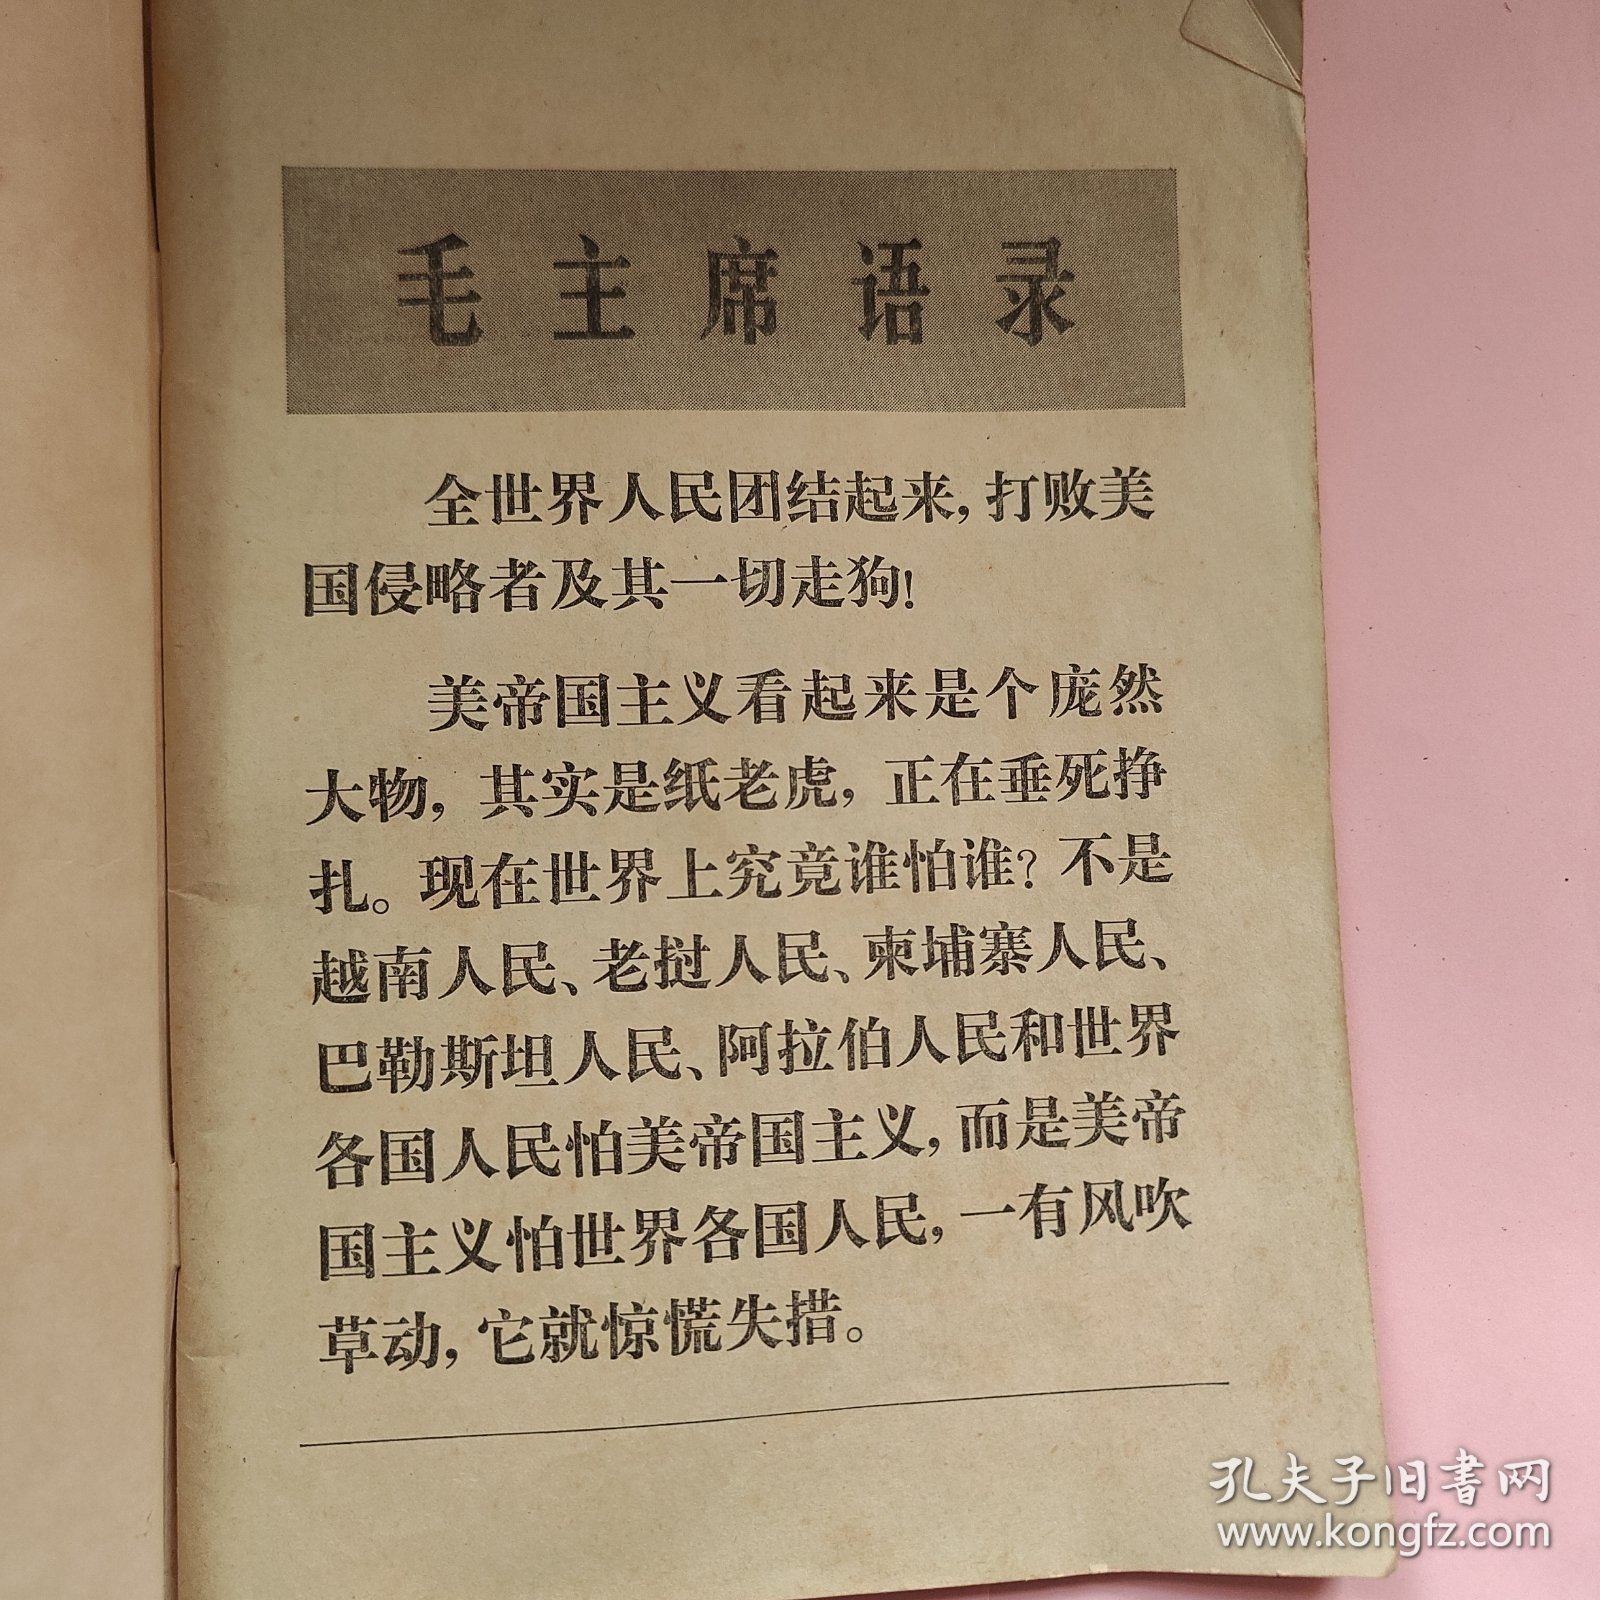 毛主席语录
全世界人民团结起来，打败美
国侵略者及其一切走狗！
美帝国主义看起来是个庞然
大物，其实是纸老虎，正在垂死挣
扎。现在世界上究竟谁怕谁？不是
越南人民、老挝人民、柬埔寨人民、
巴勒斯坦人民、阿拉伯人民和世界
各国人民怕美帝国主义，而是美帝
国主义怕世界各国人民，一有风吹
草动，它就惊慌失措。
孔夫子旧书网
www.kongfz.com